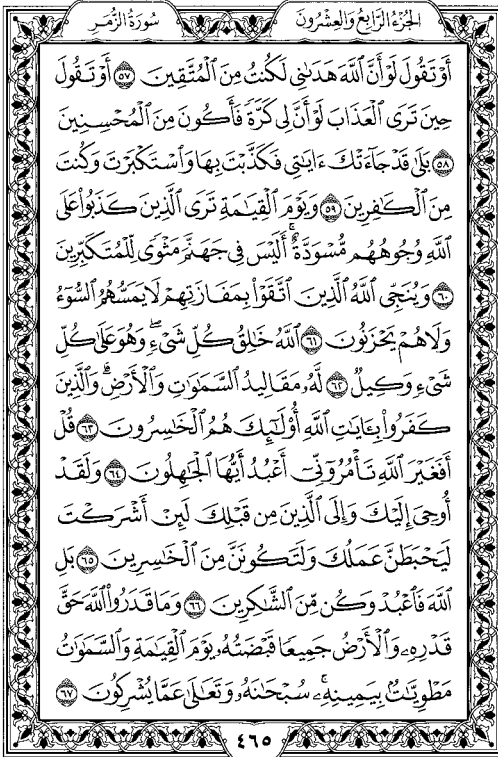 الجزء الرابع والعشرون سورة الزمر
أَوْ تَقُولَ لَوْ أَنَّ ٱللَّهَ هَدَىٰنِى لَكُنتُ مِنَ ٱلْمُتَّقِينَ ٥٧ أَوْ تَقُولَ
حِينَ تَرَى ٱلْعَذَابَ لَوْ أَنَّ لِى كَرَّةً فَأَكُونَ مِنَ ٱلْمُحْسِنِينَ
٥٨ بَلَىٰ قَدْ جَآءَتْكَ ءَايَٰتِى فَكَذَّبْتَ بِهَا وَٱسْتَكْبَرْتَ وَكُنتَ
مِنَ ٱلْكَٰفِرِينَ ٥٩ وَيَوْمَ ٱلْقِيَٰمَةِ تَرَى ٱلَّذِينَ كَذَبُوا۟ عَلَى
ٱللَّهِ وُجُوهُهُم مُّسْوَدَّةٌ ۚ أَلَيْسَ فِى جَهَنَّمَ مَثْوًى لِّلْمُتَكَبِّرِينَ
٦٠ وَيُنَجِّى ٱللَّهُ ٱلَّذِينَ ٱتَّقَوْا۟ بِمَفَازَتِهِمْ لَا يَمَسُّهُمُ ٱلسُّوٓءُ
وَلَا هُمْ يَحْزَنُونَ ٦١ ٱللَّهُ خَٰلِقُ كُلِّ شَىْءٍ ۖ وَهُوَ عَلَىٰ كُلِّ
شَىْءٍ وَكِيلٌ ٦٢ لَّهُۥ مَقَالِيدُ ٱلسَّمَٰوَٰتِ وَٱلْأَرْضِ ۗ وَٱلَّذِينَ
كَفَرُوا۟ بِـَٔايَٰتِ ٱللَّهِ أُو۟لَٰٓئِكَ هُمُ ٱلْخَٰسِرُونَ ٦٣ قُلْ
أَفَغَيْرَ ٱللَّهِ تَأْمُرُوٓنِّىٓ أَعْبُدُ أَيُّهَا ٱلْجَٰهِلُونَ ٦٤ وَلَقَدْ
أُوحِىَ إِلَيْكَ وَإِلَى ٱلَّذِينَ مِن قَبْلِكَ لَئِنْ أَشْرَكْتَ
لَيَحْبَطَنَّ عَمَلُكَ وَلَتَكُونَنَّ مِنَ ٱلْخَٰسِرِينَ ٦٥ بَلِ
ٱللَّهَ فَٱعْبُدْ وَكُن مِّنَ ٱلشَّٰكِرِينَ ٦٦ وَمَا قَدَرُوا۟ ٱللَّهَ حَقَّ
قَدْرِهِۦ وَٱلْأَرْضُ جَمِيعًا قَبْضَتُهُۥ يَوْمَ ٱلْقِيَٰمَةِ وَٱلسَّمَٰوَٰتُ
مَطْوِيَّٰتٌۢ بِيَمِينِهِۦ ۚ سُبْحَٰنَهُۥ وَتَعَٰلَىٰ عَمَّا يُشْرِكُونَ ٦٧
٤٦٥